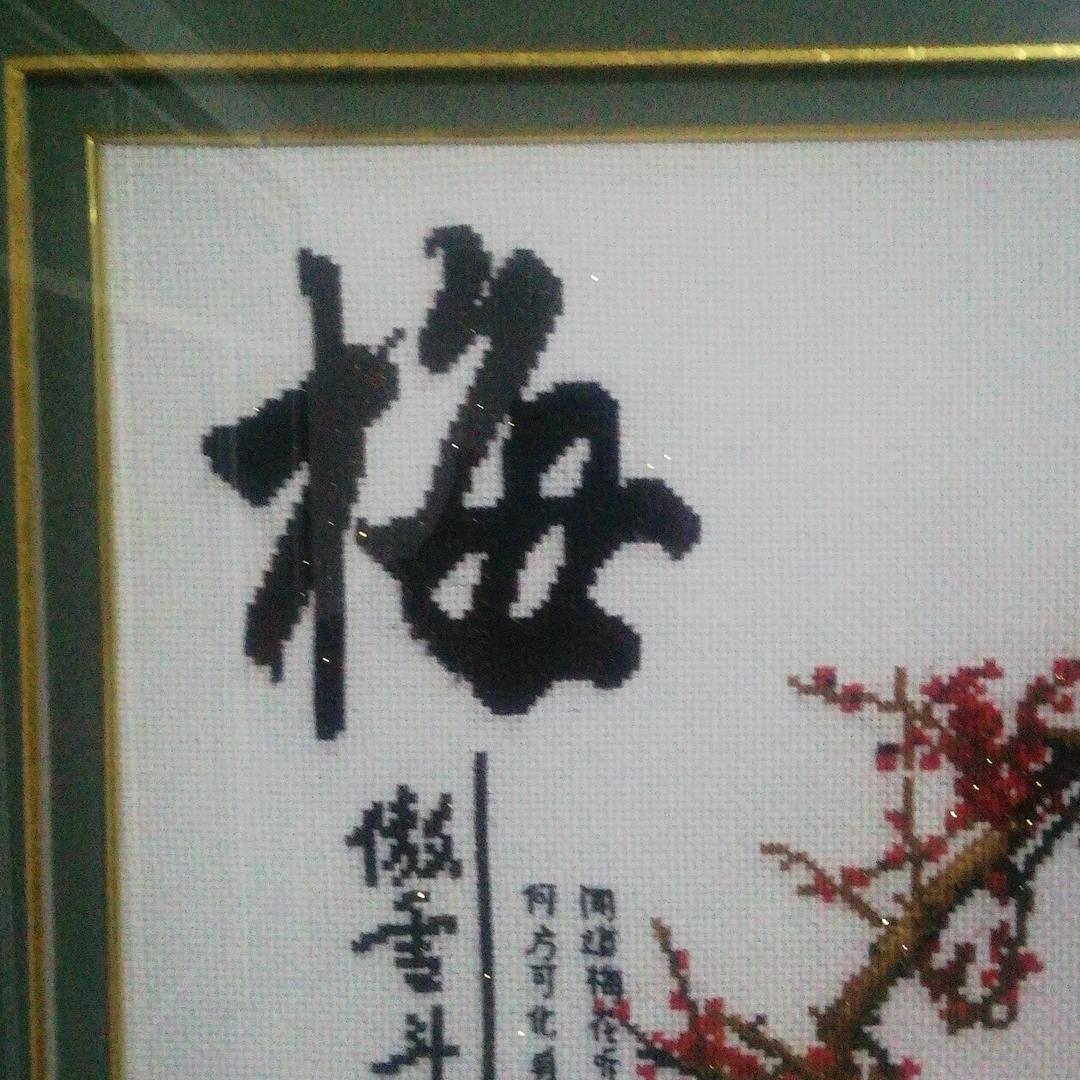 梅
傲雪斗
闻道梅花
何方可化